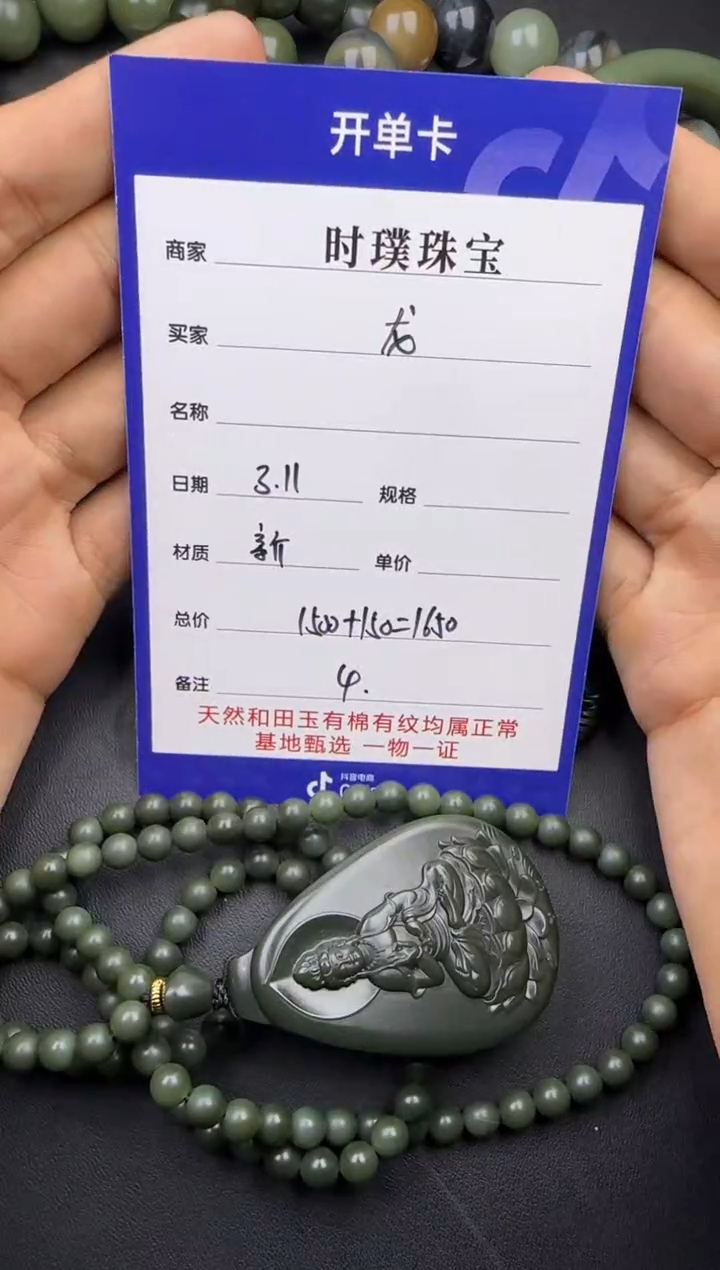 开单卡
商家 时璞珠宝
买家 龙
名称
日期 3.11 规格
材质 新 单价
总价 1500+150=1650
备注 4.
天然和田玉有棉有纹均属正常
基地甄选 一物一证
抖音电商